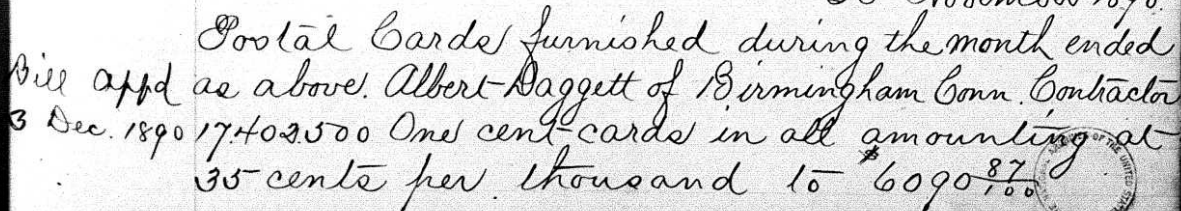 November 1890.
Postal Cards furnished during the month ended
Bill appd as above. Albert Daggett of Birmingham Conn. Contractor
3 Dec. 1890 17.402.500 One cent cards in all amounting at
35 cents per thousand to $6090 87/100
OF THE UNITED